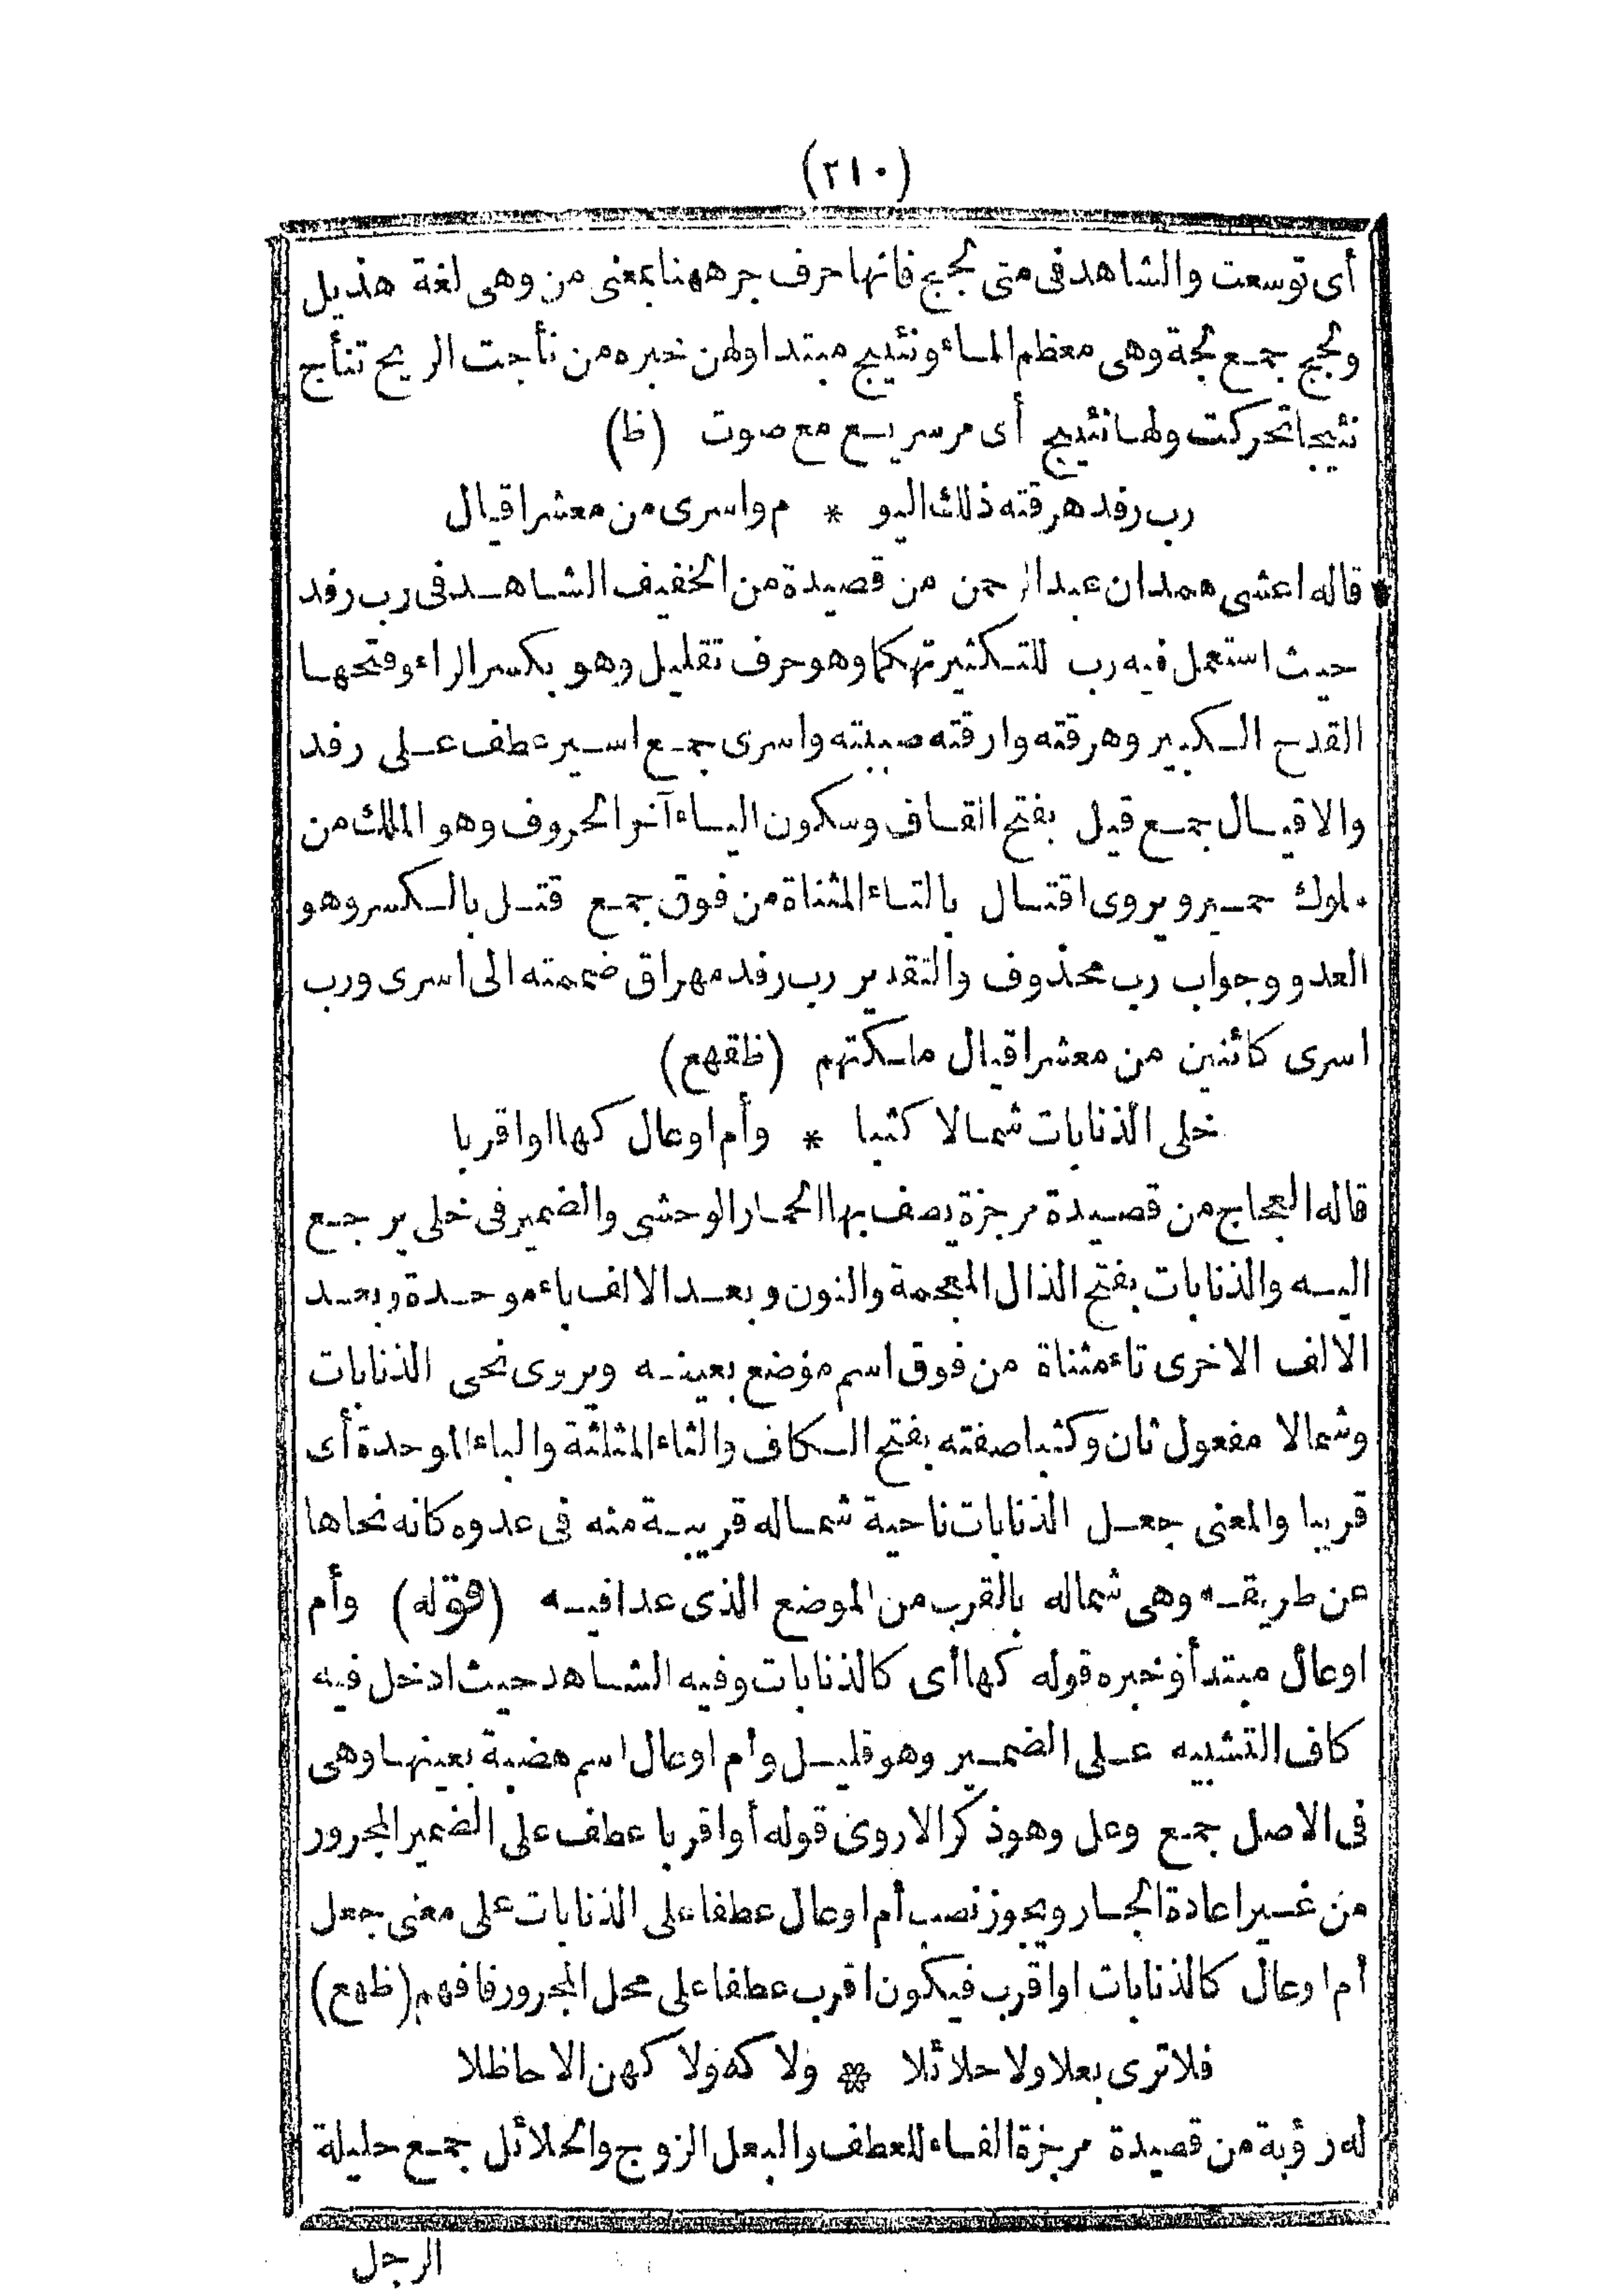 (٢١٠)
أى توسعت والشاهد فى متى لجج فانها حرف جر ههنا بمعنى من وهى لغة هذيل
ولجج جمع لجة وهى معظم الماء ونئيج مبتدا ولهن خبره من نأجت الريح تنأج
نئيجا تحركت ولها نئيج أى مر سريع مع صوت (ظ)
رب رفد هرقته ذلك اليو * م واسرى من معشر اقيال
قاله اعشى همدان عبد الرحمن من قصيدة من الخفيف الشاهد فى رب رفد
حيث استعمل فيه رب للتكثير تهكما وهو حرف تقليل وهو بكسر الراء وفتحها
القدح الكبير وهرقته وارقته صببته واسرى جمع اسير عطف على رفد
والاقيال جمع قيل بفتح القاف وسكون الياء آخر الحروف وهو الملك من
ملوك حمير ويروى اقتال بالتاء المثناة من فوق جمع قتل بالكسر وهو
العدو وجواب رب محذوف والتقدير رب رفد مهراق ضممته الى اسرى ورب
اسرى كائنين من معشر اقيال ملكتهم (ظقهع)
خلى الذنابات شمالا كثبا * وأم اوعال كها او اقربا
قاله العجاج من قصيدة مرجزة يصف بها الحمار الوحشى والضمير فى خلى يرجع
اليه والذنابات بفتح الذال المعجمة والنون وبعد الالف باء موحدة وبعد
الالف الاخرى تاء مثناة من فوق اسم موضع بعينه ويروى نحى الذنابات
وشمالا مفعول ثان وكثبا صفته بفتح الكاف والثاء المثلثة والباء الموحدة أى
قريبا والمعنى جعل الذنابات ناحية شماله قريبة منه فى عدوه كانه نحاها
عن طريقه وهى شماله بالقرب من الموضع الذى عدا فيه (قوله) وأم
اوعال مبتدأ وخبره قوله كها أى كالذنابات وفيه الشاهد حيث ادخل فيه
كاف التشبيه على الضمير وهو قليل وام اوعال اسم هضبة بعينها وهى
فى الاصل جمع وعل وهو ذكر الاروى قوله أو اقربا عطف على الضمير المجرور
من غير اعادة الجار ويجوز نصب أم اوعال عطفا على الذنابات على معنى جعل
أم اوعال كالذنابات او اقرب فيكون اقرب عطفا على محل المجرور فافهم (ظهع)
فلا ترى بعلا ولا حلائلا * ولا كه ولا كهن الا حاظلا
له رؤبة من قصيدة مرجزة الفاء للعطف والبعل الزوج والحلائل جمع حليلة
الرجل